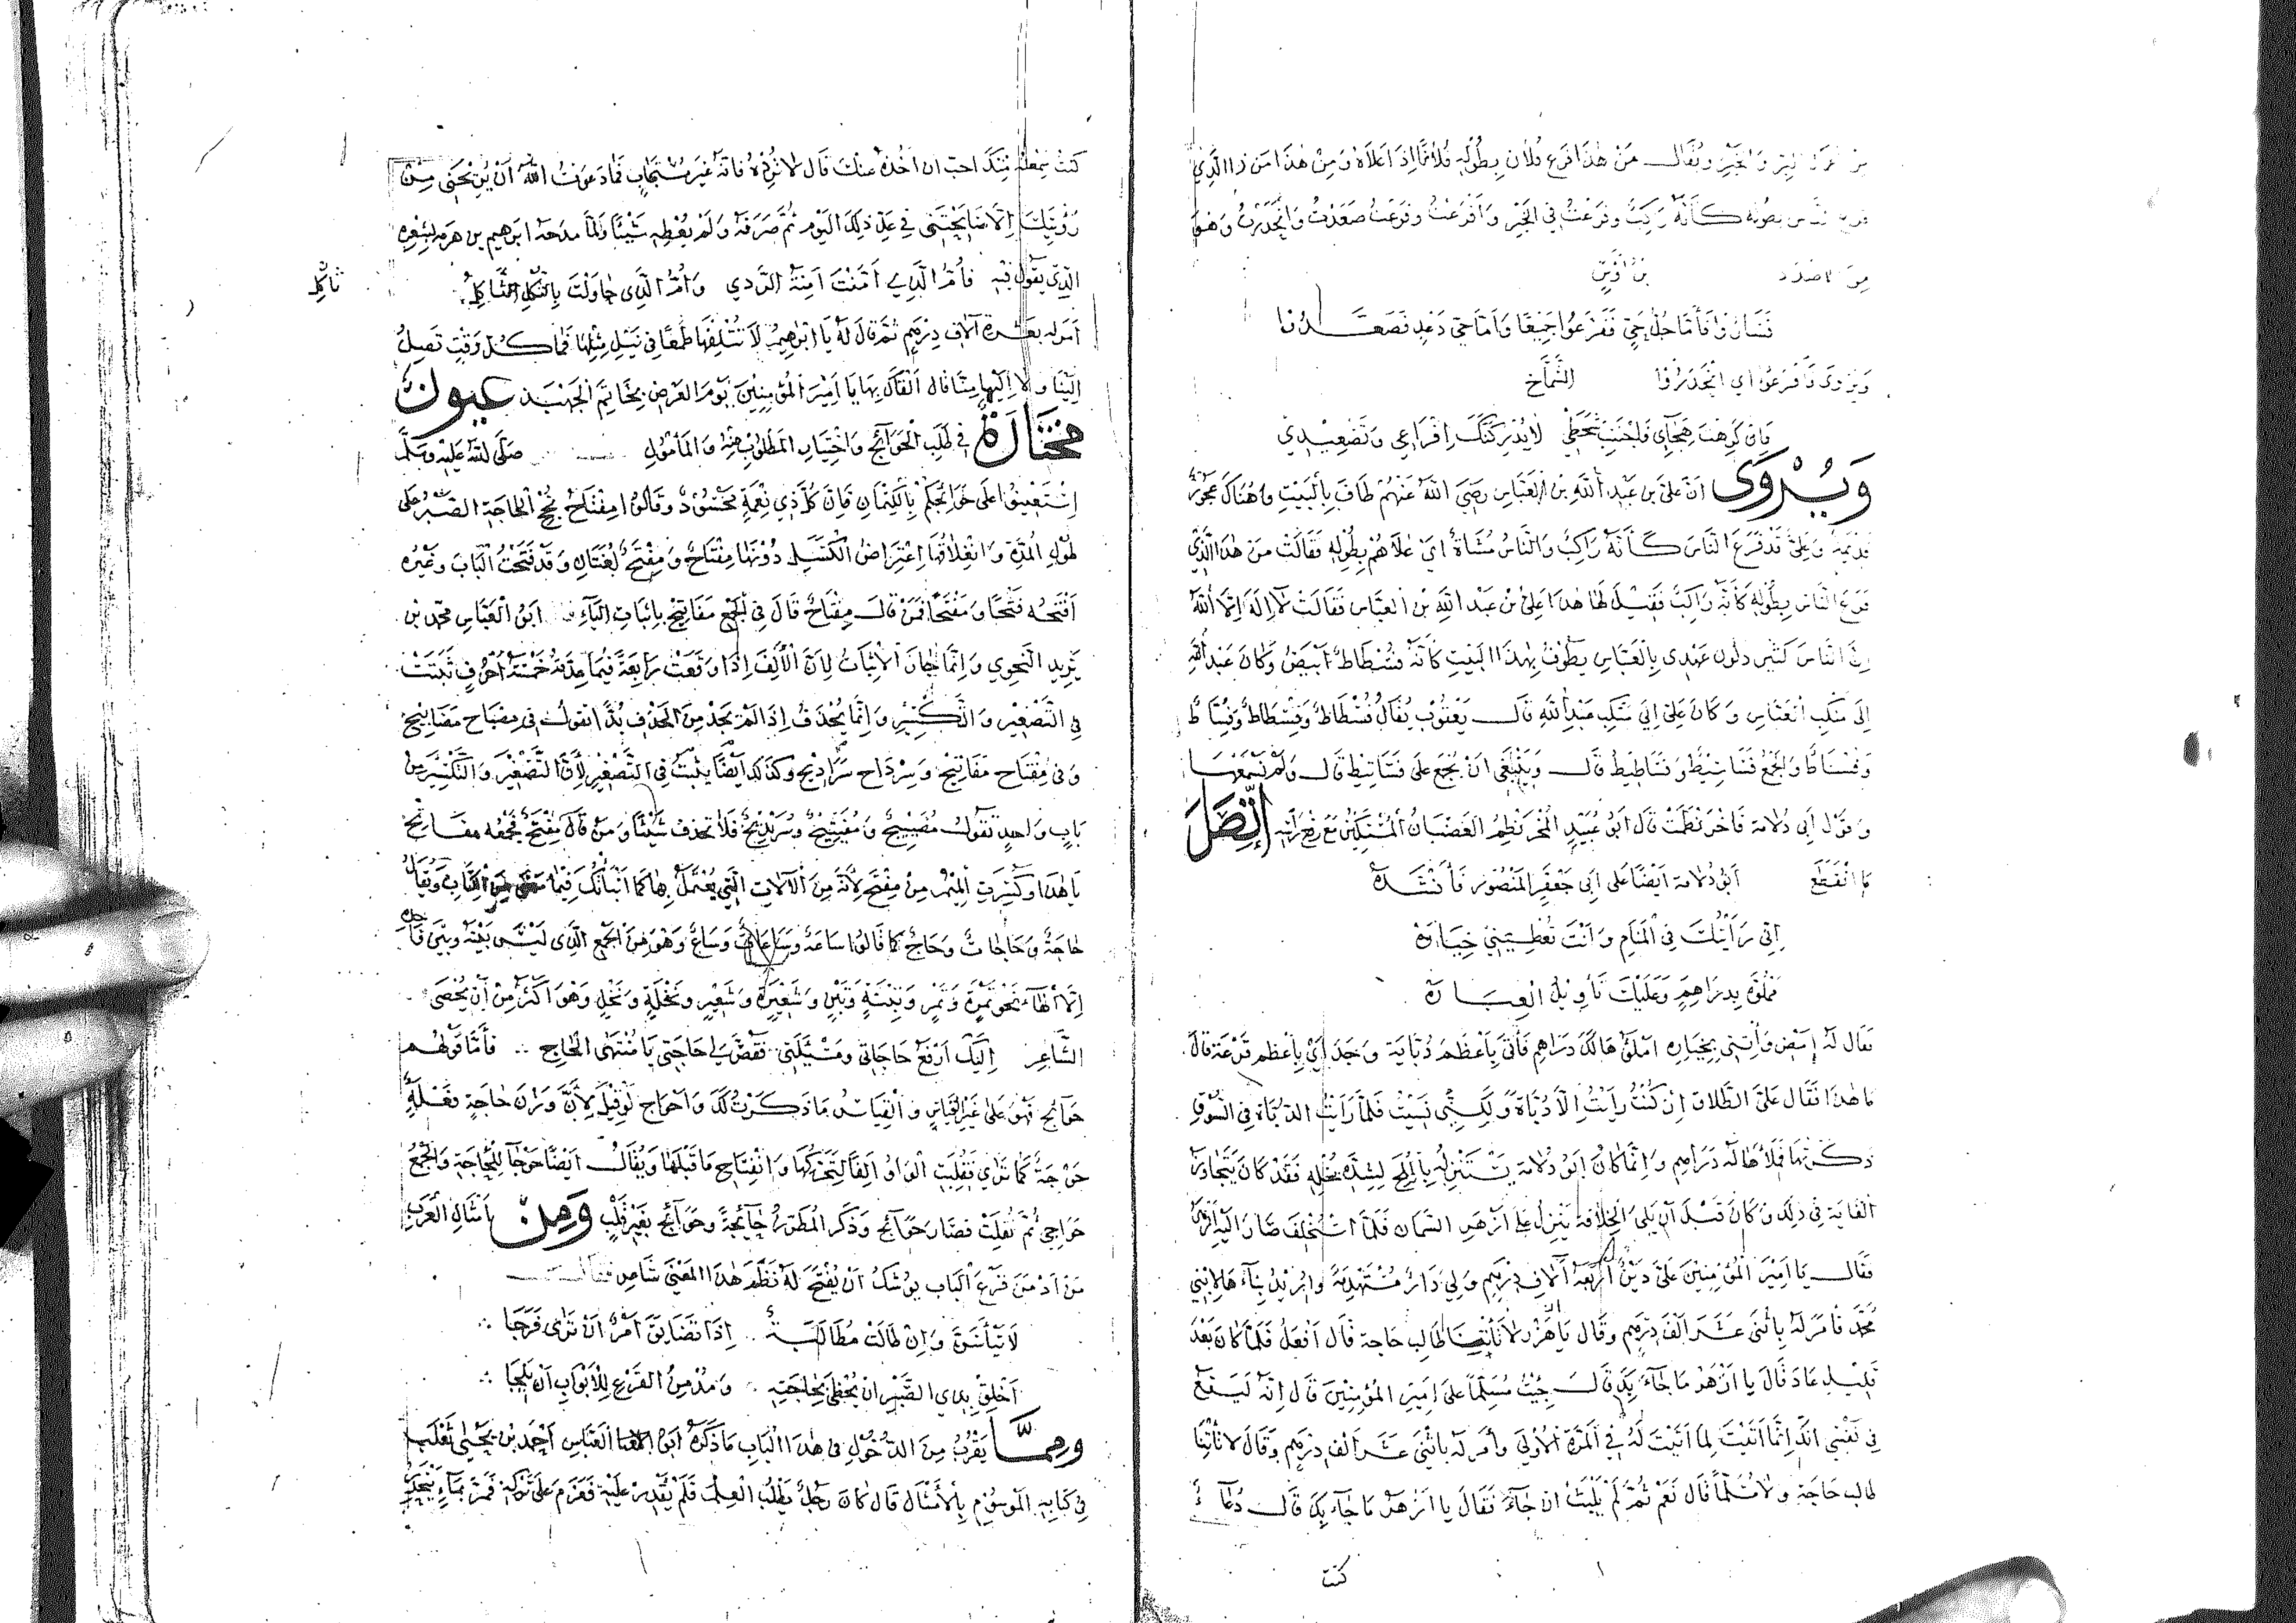 ويقال من هذا فرع فلان بطوله فلانا إذا علاه ومن هذا من ذا الذي
الناس بطوله كأنه راكب وفرعت في الجبل وأفرعت وفرعت صعدت وانحدرت وهو
من الاضداد بن أوس
فساروا فأما جل حي ففرعوا جميعا وأما حي دعد فصعدوا
ويروى فأفرعوا أي انحدروا الشماخ
فإن كرهت هجائي فاجتنب سخطي لا يدركنك إفراعي وتصعيدي
ويروى أن علي بن عبد الله بن العباس رضي الله عنهم طاف بالبيت وهناك عجوز
قديمة وعلي قد فرع الناس كأنه راكب والناس مشاة أي علاهم بطوله فقالت من هذا الذي
فرع الناس بطوله كأنه راكب فقيل لها هذا علي بن عبد الله بن العباس فقالت لا إله إلا الله
إن الناس عهدي بالعباس يطوف بهذا البيت كأنه فسطاط أبيض وكان عبد الله
إلى منكب العباس وكان علي إلى منكب عبد الله قال يعقوب يقال فسطاط وفسطاط وفستاط
وفستاط والجمع فساطيط قال وينبغي أن يجمع على فساتيط قال ولم نسمعها
وقول أبي دلامة فاخرنطمت قال أبو عبيد المخرنطم الغضبان المتكبر مع رفع رأسه إتصل
ما انقطع أبو دلامة أيضا على أبي جعفر المنصور فأنشده
إني رأيتك في المنام وأنت تعطيني خياره
مملوة بدراهم وعليك تأويل العباره
فقال له إمض وأتني بخياره املؤها لك دراهم فأتى بأعظم دباية وجد أي بأعظم قرعة قال
ما هذا فقال علي الطلاق إن كنت رأيت إلا دباة ولكني نسيت فلما رأيت الدباة في السوق
ذكرتها فملأها له دراهم وإنما كان أبو دلامة يستنزله بالملح لشدة بخله فقد كان يتجاوز
الغاية في ذلك وكان قبل أن يلي الخلافة ينزل على أزهر السمان فلما استخلف صار إليه أزهر
فقال يا أمير المؤمنين علي دين أربعة آلاف درهم ولي دار متهدمة وأريد بناءها لابني
محمد فأمر له باثنى عشر ألف درهم وقال يا أزهر لا تأتنا طالب حاجة قال أفعل فلما كان بعد
قليل عاد قال يا أزهر ما جاء بك قال جيت مسلما على أمير المؤمنين قال إنه ليقع
في نفسي أنك إنما أتيت لما أتيت له في المرة الأولى وأمر له باثنى عشر ألف درهم وقال لا تأتنا
طالب حاجة ولا مسلما قال نعم ثم لم يلبث ان جاء فقال يا أزهر ما جاء بك قال دعاء
كنت
كنت سمعته منك احب ان آخذه عنك قال لا ترده فانه غير مستجاب فما دعوت الله أن يريحني من
رؤيتك إلا في ذلك اليوم ثم صرفه ولم يعطه شيئا ولما مدحه ابرهيم بن هرمه بشعره
الذي يقول فيه فأم الذي أمنت آمنة الردي وأم الذي حاولت بالثكل ثاكل
ثاكل
أمر له بعشرة آلاف درهم ثم قال له يا ابراهيم لا تتلفها طمعا في نيل مثلها فما كل وقت تصل
إلينا ولا إليها منا قال ألقاك بها يا أمير المؤمنين يوم العرض بخاتم الجهبذ عيون
مختارة في طلب الحوائج واختيار المطلوب منه والمأمول صلى الله عليه وسلم
استعينوا على حوائجكم بالكتمان فإن كل ذي نعمة محسود وقالوا مفتاح نجح الحاجة الصبر على
طول المدة وانغلاقها اعتراض الكسل دونها مفتاح ومفتح لغتان وقد فتحت الباب وغيره
أفتحه فتحا ومفتحا فمن قال مفتاح قال في الجمع مفاتيح باثبات الياء ابو العباس محمد بن
يزيد النحوي وإنما كان الإثبات لأن الألف إذا وقعت رابعة فيما عدته خمسة أحرف ثبتت
في التصغير والتكسير وإنما يحذف إذا لم يجد من الحذف بدا تقول في مصباح مصابيح
وفي مفتاح مفاتيح وسرداح سراديح وكذلك أيضا يثبت في التصغير لأن التصغير والتكسير من
باب واحد تقول مصيبيح ومفيتيح وسريديح فلا تحذف شيئا ومن قال مفتح فجمعه مفاتح
يا هذا وكسرت الميم من مفتح لأنه من الآلات التي يعتمل بها كما أنبأتك فيما مضى من الكتاب ويقال
حاجة وحاجات وحاج كما قالوا ساعة وساعات وساع وهو من الجمع الذي ليس بينه وبين واحده
إلا الهاء نحو تمرة وتمر وتبنة وتبن وشعيرة وشعير ونخلة ونخل وهو أكثر من أن يحصى
الشاعر إليك أرفع حاجاتي ومسئلتي فقض لي حاجتي يا منتهى الحاج فأما قولهم
حوائج فهو على غير القياس والقياس ما ذكرت لك واحواج لو قيل لأن وزن حاجة فعلة
حوجة كما ترى فقلبت الواو ألفا لتحركها وانفتاح ما قبلها ويقال أيضا حوجا للحاجة والجمع
حواجي ثم قلبت فصار حوائج وذكر المطرز حائجة وحوائج بغير قلب ومن أمثال العرب
من أدمن قرع الباب يوشك أن يفتح له نظم هذا المعنى شاعر فقال
لا تيأسن وإن طالت مطالبة إذا تضايق أمر أن ترى فرجا
أخلق بذي الصبر ان يحظى بحاجته ومدمن القرع للأبواب أن يلجا
ومما يقرب من الدخول في هذا الباب ما ذكره أبو العباس أحمد بن يحيى ثعلب
في كتابه الموسوم بالأمثال قال كان رجل يطلب العلم فلم يقدر عليه فعزم على تركه فمر بماء ينحدر